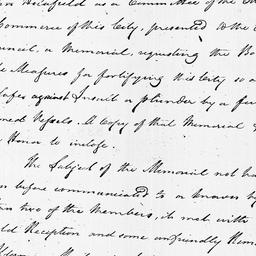 as a Committee of the
Commerce of this City, presented to the C
uncil, a Memorial, requesting the Bo
Measures for fortifying this City so a
Safe against Insult or plunder by a few
med Vessels. A Copy of that Memorial
Honor to inclose.
The Subject of the Memorial not ha
n before communicated to or known by
than two of the Members, it met with
ld Reception and some unfriendly Rema